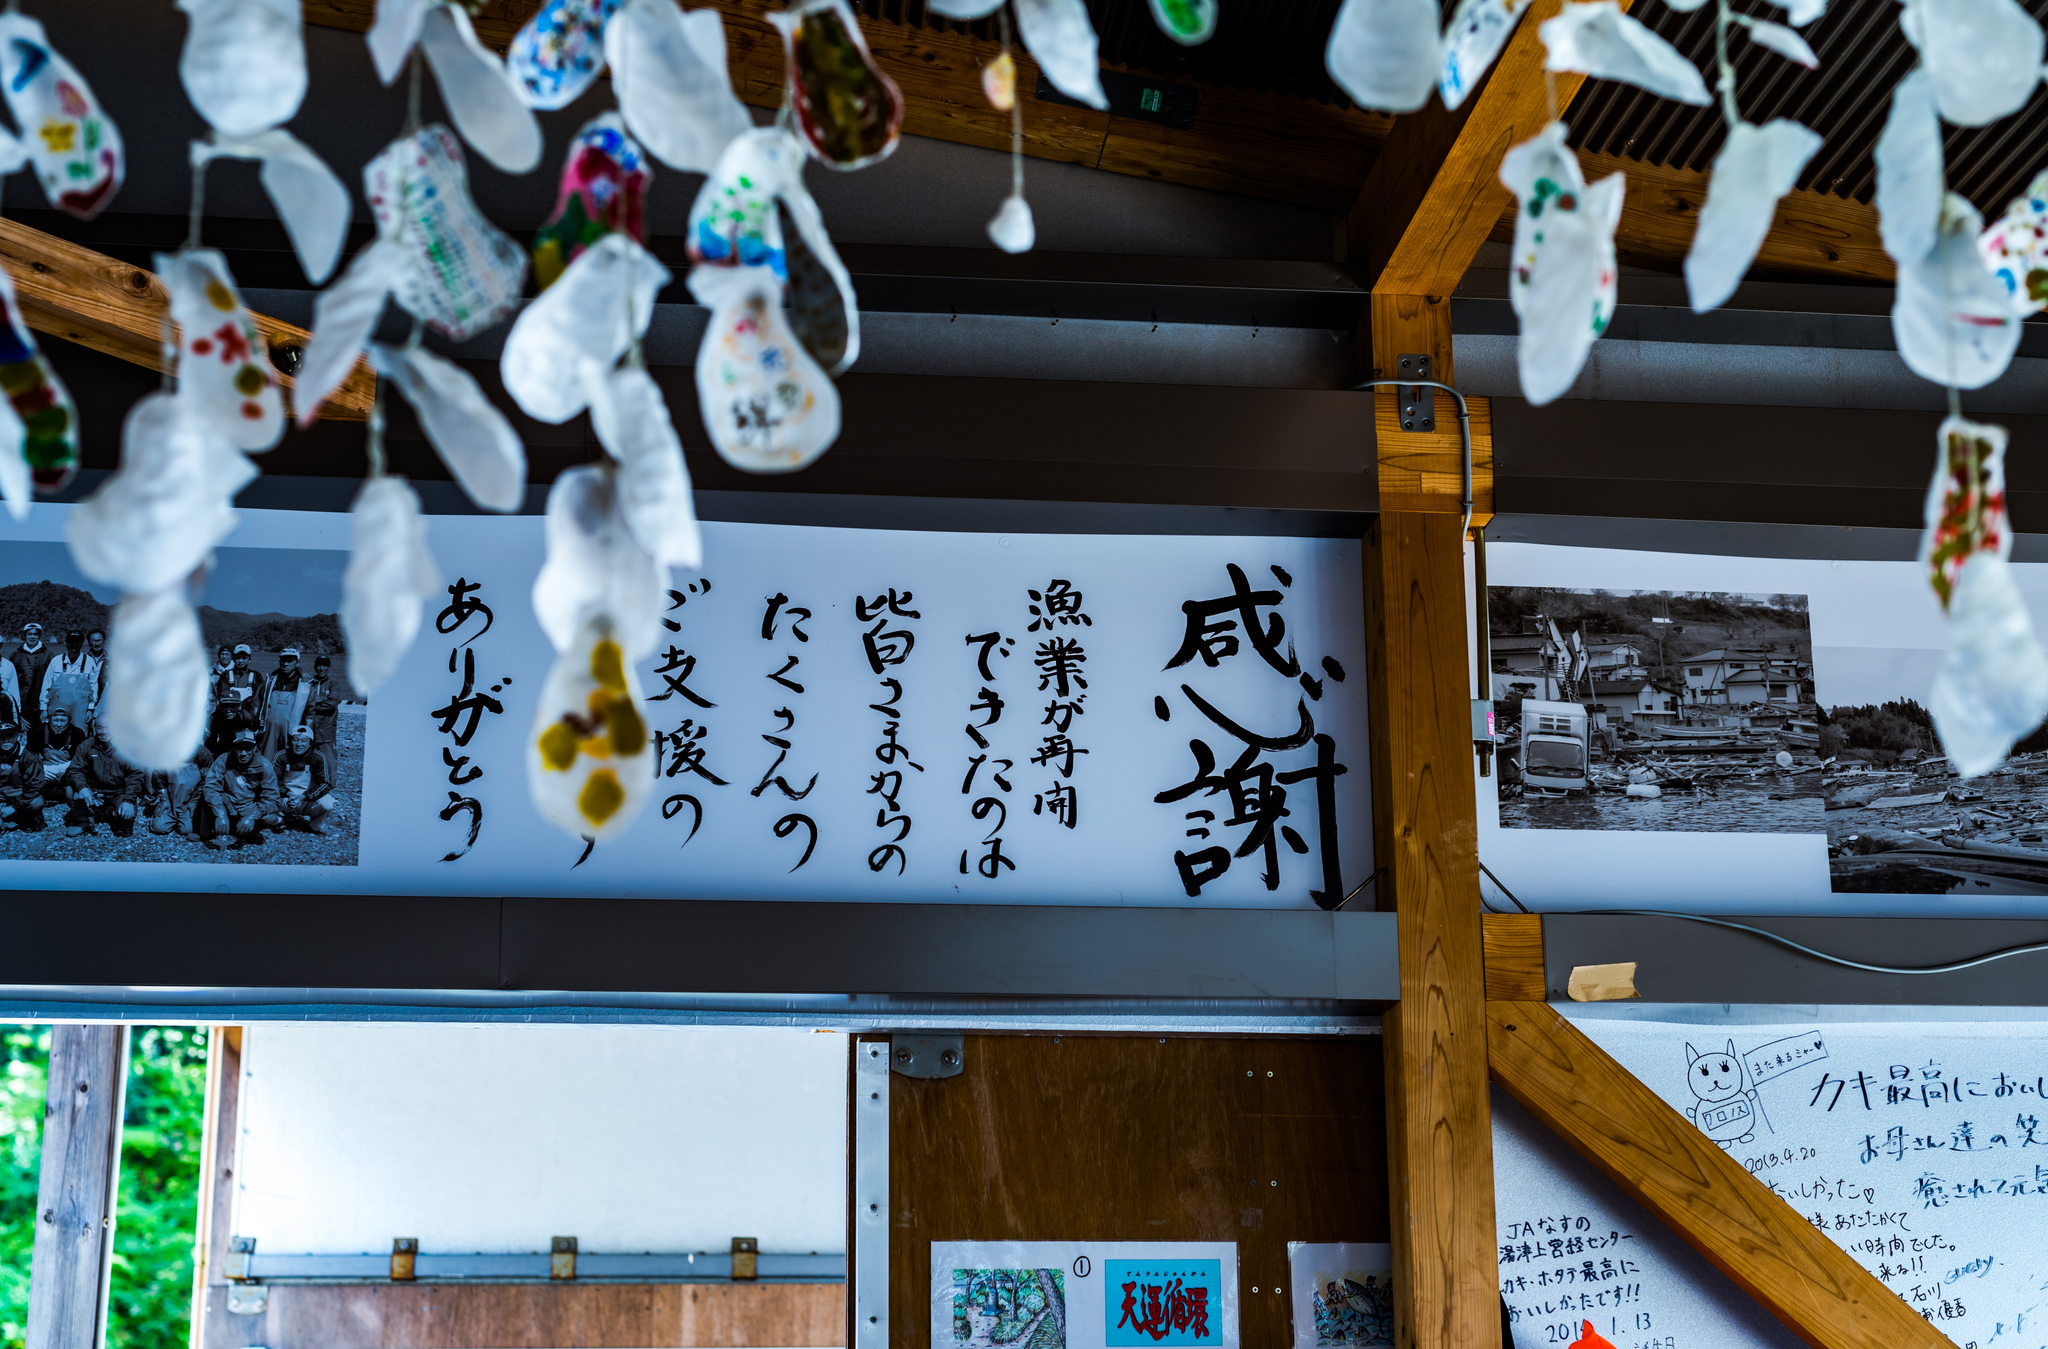 感謝
漁業が再開
できたのは
皆さまからの
たくさんの
ご支援の
ありがとう
絆
また来るミャー♥
クロノス
2013.4.20
カキ最高においし
お母さん達の笑
癒されて元気
おいしかった♡
様あたたかくて
い時間でした。
来る!!
石川
JAなすの
湯津上営経センター
カキ・ホタテ最高に
おいしかったです!!
1.13
①
てんうんじゅんかん
天運循環